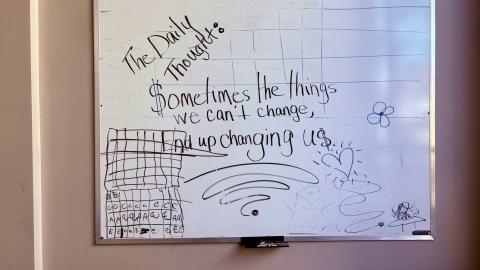 The Daily
Thought:
Sometimes the things
we can't change,
End up changing us.